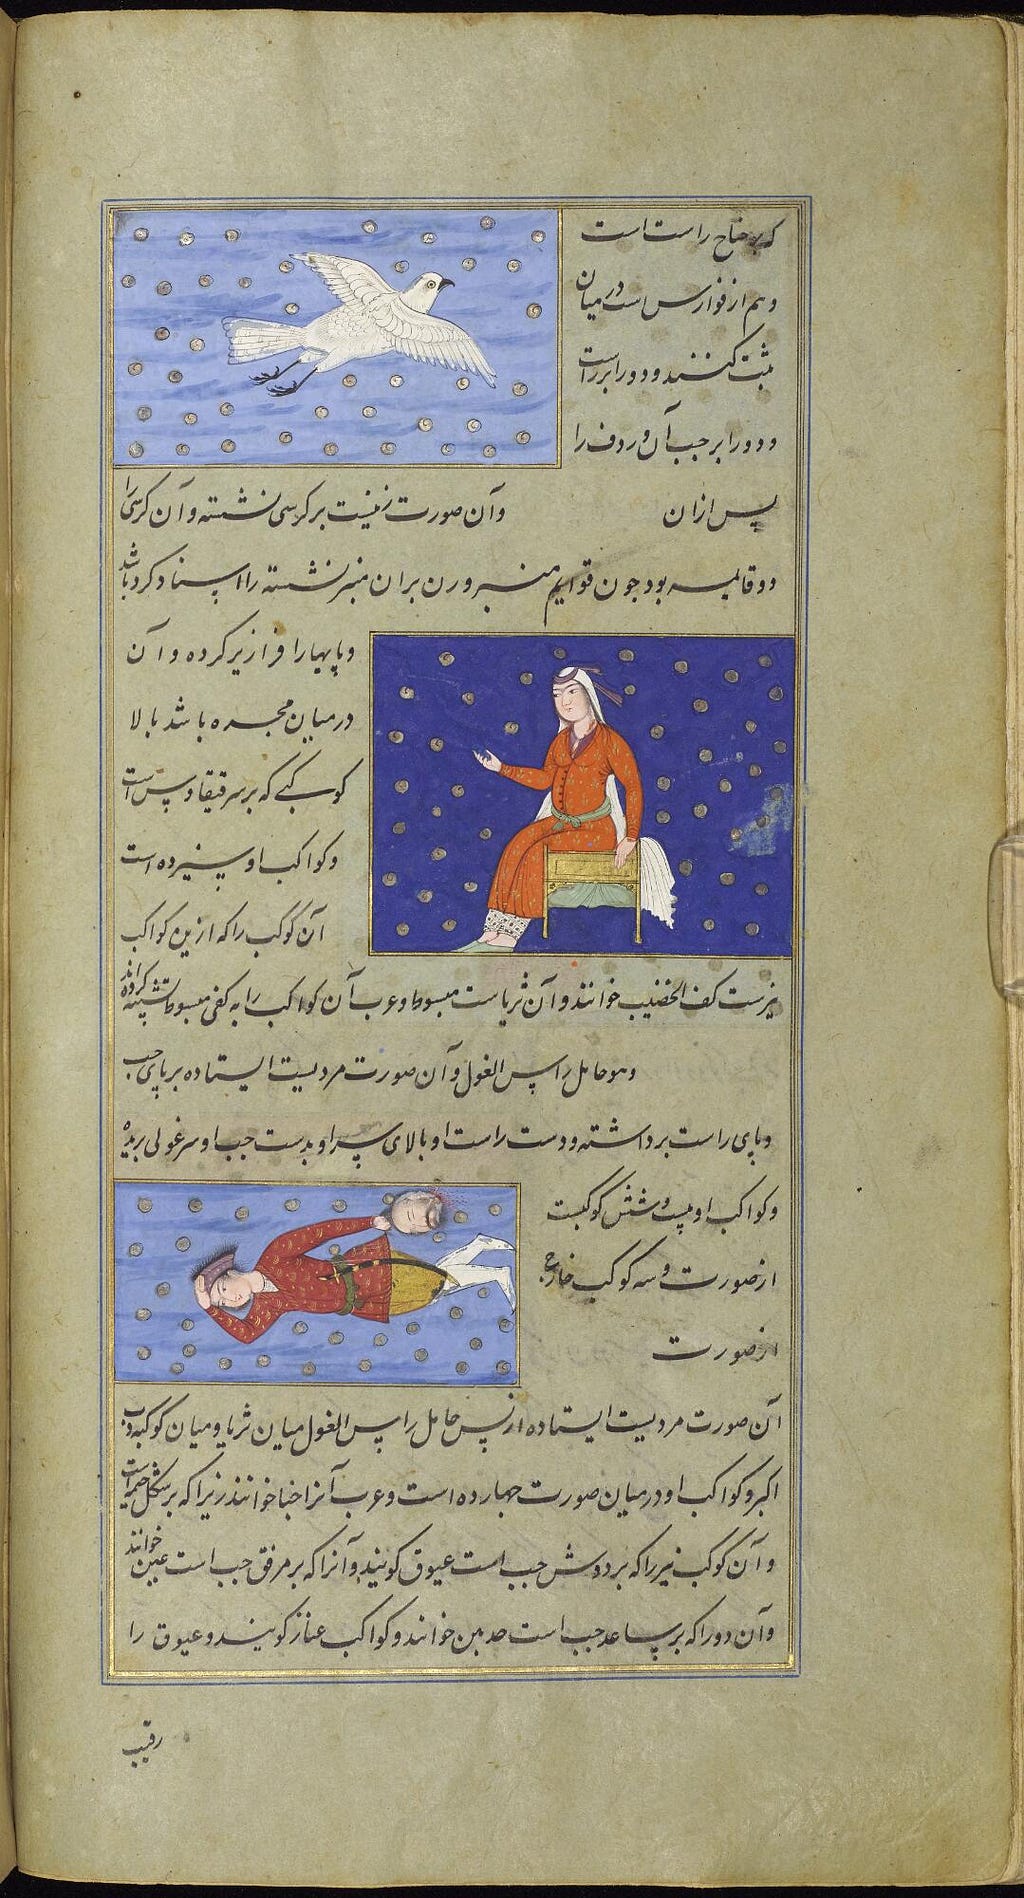 که بر جناح راست است
و هم از فوارس است در میان
ثبت کنند و دو را بر راست
و دو را بر جب آن و ردف را
پس ازان
وآن صورت زنیست بر کرسی نشسته وآن کرسی را
دو قایمه بود جون قوایم منبر و زن بران منبر نشسته را اسناد کرده باشد
و پایها را فرا زیر کرده و آن
در میان مجره باشد بالا
کوکبی که بر سر قیقاوس است
و کواکب او سیزده است
آن کوکب را که ازین کواکب
نیرست کف الخضیب خوانند وآن ثریاست مبسوط وعرب آن کواکب را به کفی مبسوط تشبیه کرده اند
وهو حامل راس الغول وآن صورت مردیست ایستاده بر پای جب
و پای راست برداشته و دست راست او بالای سر او بدست جب او سر غولی بریده
و کواکب او بیست و شش کوکبست
از صورت و سه کوکب خارج
از صورت
آن صورت مردیست ایستاده از پس حامل راس الغول میان ثریا و میان کوکبه دب
اکبر و کواکب او در میان صورت جهارده است و عرب آنرا خبا خوانند زیرا که بر شکل خیمه است
و آن کوکب نیر را که بر دوش جب است عیوق کویند وآنرا که بر مرفق جب است عین خوانند
وآن دو را که بر ساعد جب است جدیین خوانند و کواکب عناز کویند و عیوق را
رقیب